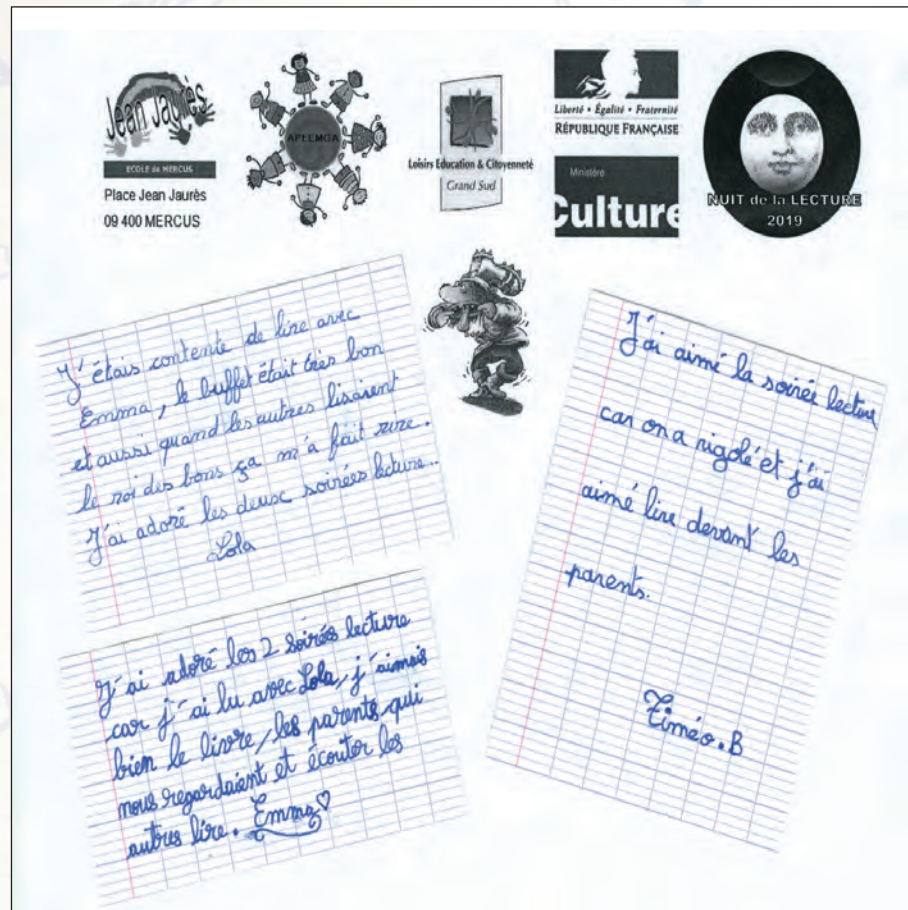 Jean Jaurès
ECOLE de MERCUS
Place Jean Jaurès
09 400 MERCUS
APEEMGA
Loisirs Education & Citoyenneté
Grand Sud
Liberté • Égalité • Fraternité
RÉPUBLIQUE FRANÇAISE
Ministère
Culture
NUIT de la LECTURE
2019
J'étais contente de lire avec
Emma, le buffet était très bon
et aussi quand les autres lisaient
le roi des bons ça m'a fait rire.
J'ai adoré les deux soirées lecture..
Lola
J'ai adoré les 2 soirées lecture
car j'ai lu avec Lola, j'aimais
bien le livre, les parents qui
nous regardaient et écouter les
autres lire. Emma
J'ai aimé la soirée lecture
car on a rigolé et j'ai
aimé lire devant les
parents.
Timéo.B